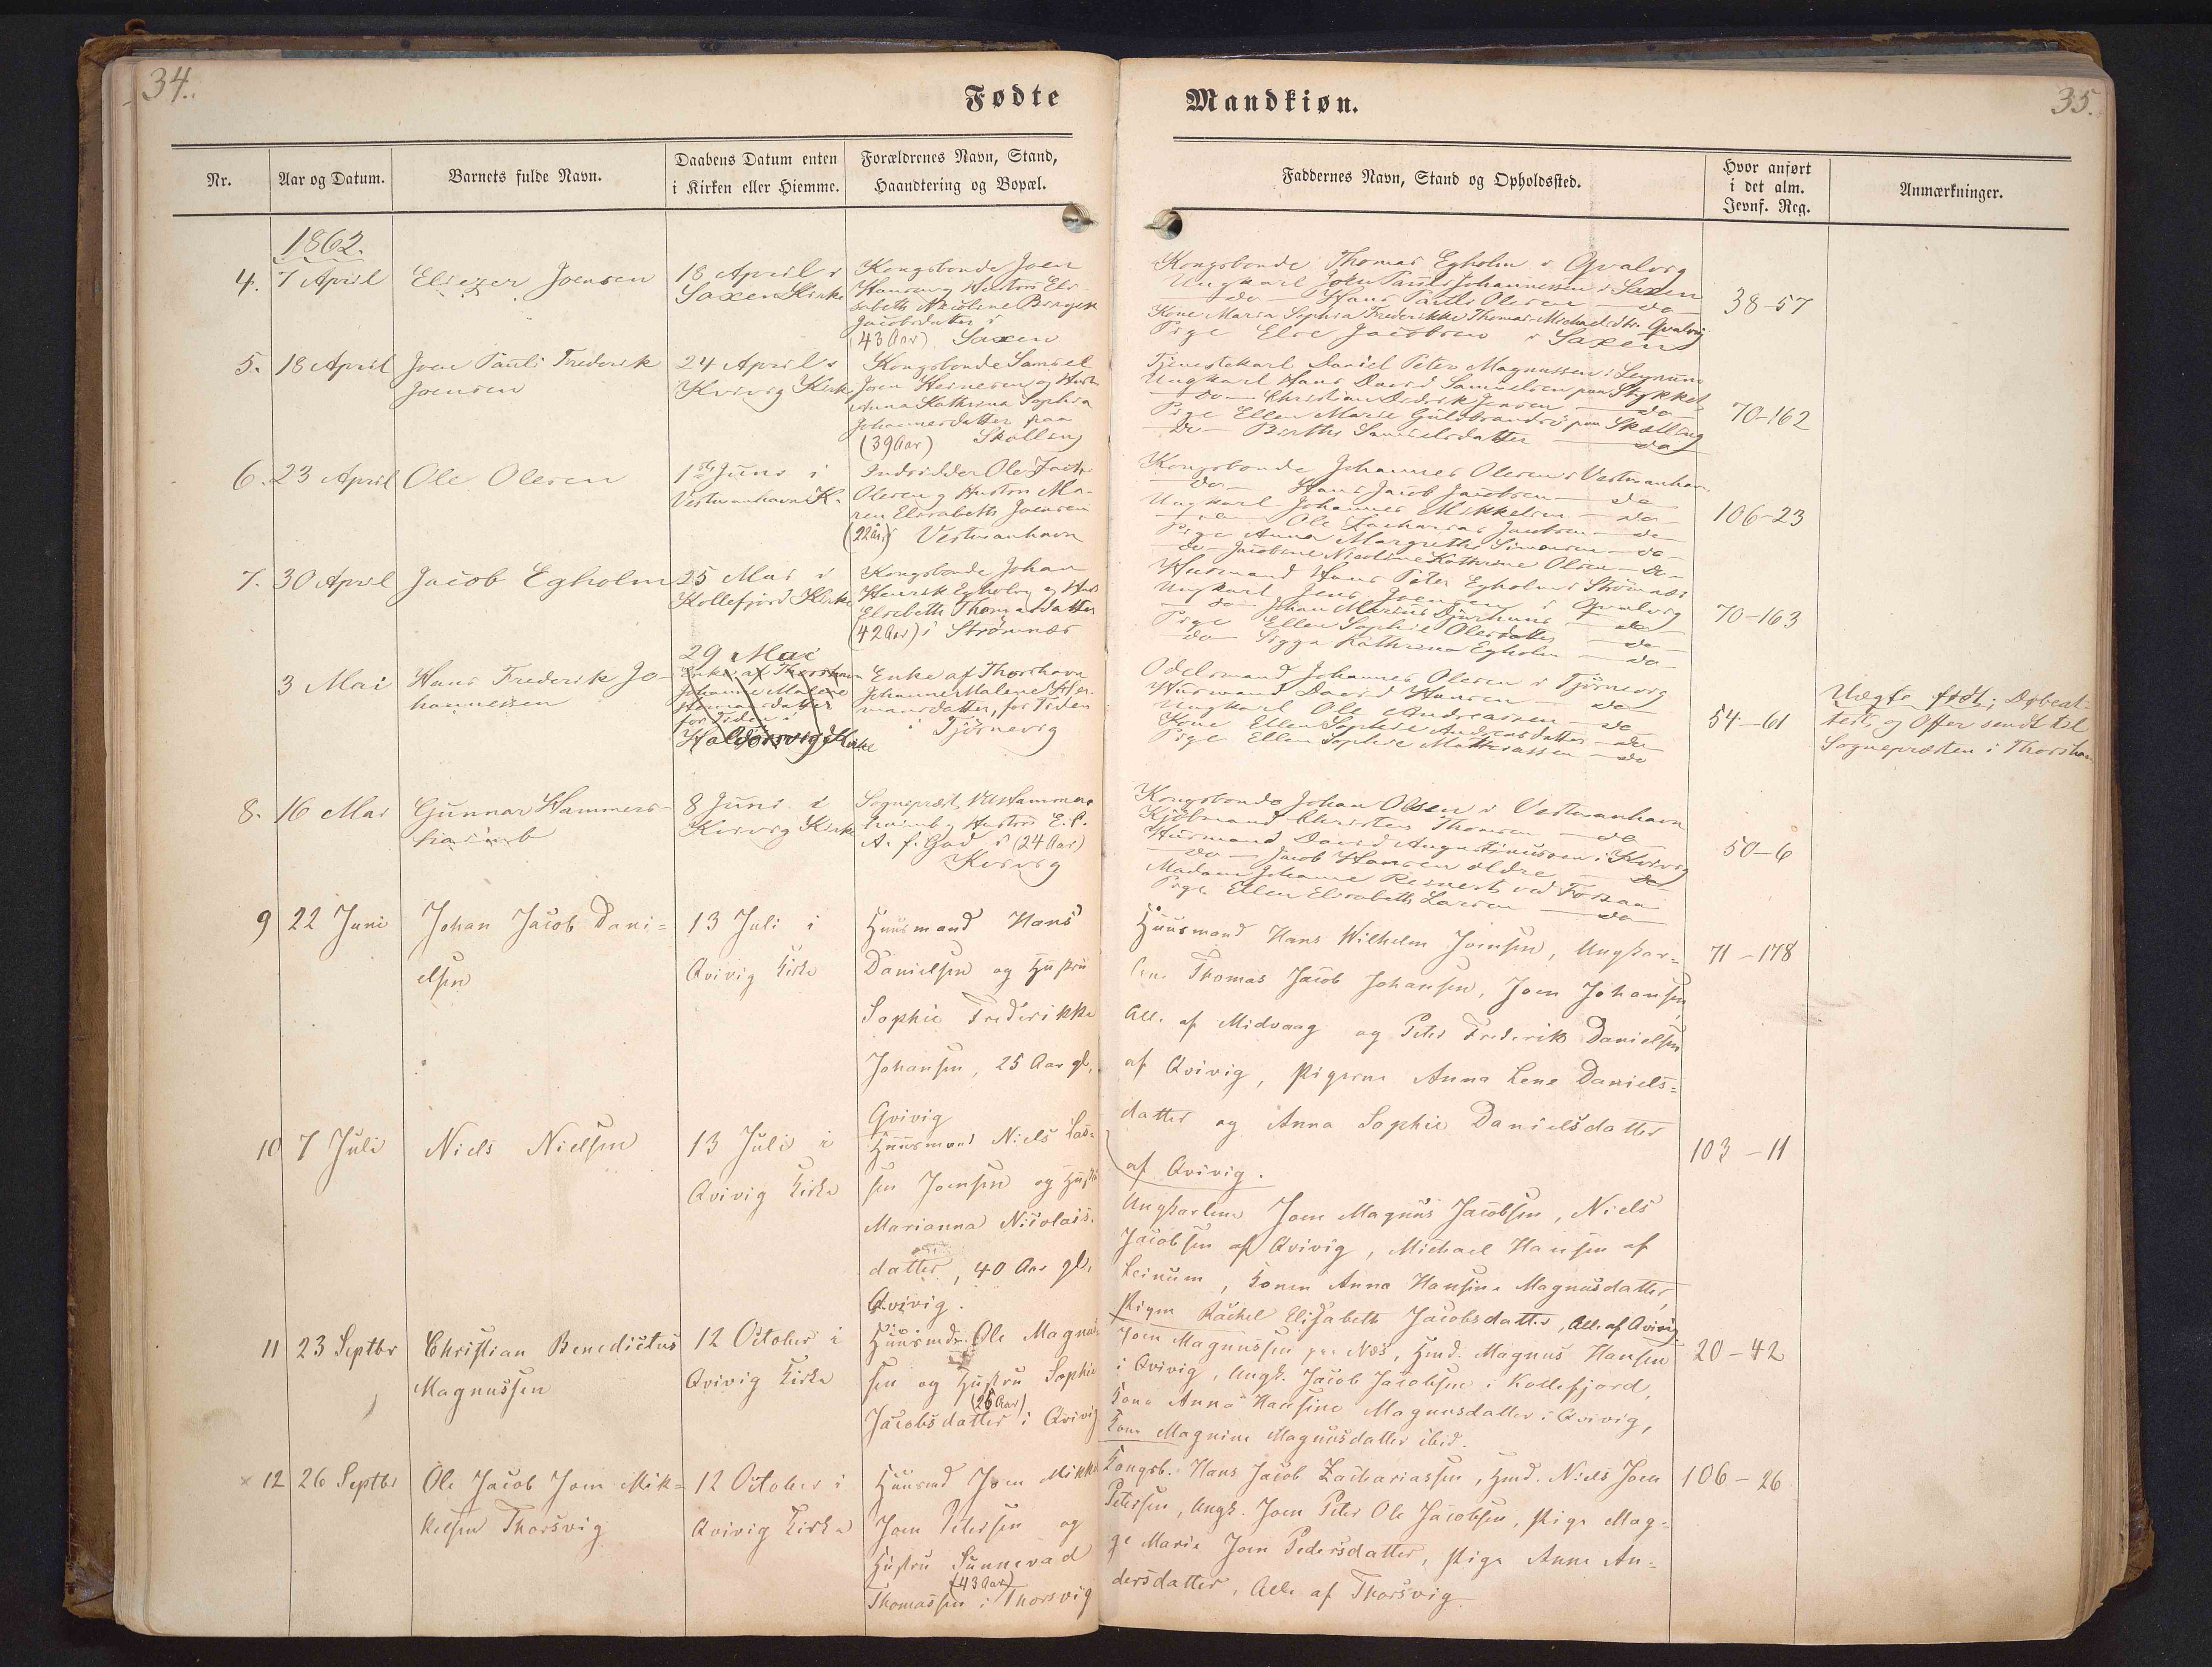 34.
Fødte
Nr.
Aar og Datum.
Barnets fulde Navn.
Daabens Datum enten
i Kirken eller Hiemme.
Forældrenes Navn, Stand,
Haandtering og Bopæl.
1862.
4.
7 April
Eliezer Joensen
18 April i
Saxen Kirke
Kongsbonde Joen
Hansen og Hustru Eli-
sabeth Nicoline Birgithe
Jacobsdatter i
(43 Aar) Saxen
5.
18 April
Joen Pauli Frederik
Joensen
24 April i
Kvivig Kirke
Kongsbonde Samuel
Joen Heinesen og Hustr
Anna Kathrina Sophia
Johannesdatter paa
(39 Aar) Skælling
6.
23 April
Ole Olesen
1ste Juni i
Vestmanhavn K.
Indsidder Ole Jacob
Olesen og Hustru Ma-
ren Elisabeth Joensen
(22 Aar) i Vestmanhavn
7.
30 April
Jacob Egholm
25 Mai i
Kollefjord Kirke
Kongsbonde Johan
Henrik Egholm og Hust
Elsebeth Thomasdatter
(42 Aar) i Strömnæs
3 Mai
Hans Frederik Jo-
hannessen
29 Mai
Enke af Thorshavn
Johanne Malene
Hermansdatter
for Tiden i
Haldorsvig Kirke
Enke af Thorshavn
Johanne Malene Her-
mansdatter, for Tiden
i Tjörnevig
8.
16 Mai
Gunnar Hammers-
haimb
8 Juni i
Kvivig Kirke
Sognepræst, V U Hammers
haimb og Hustru E. C.
A. f. Gad i (24 Aar)
Kvivig
9
22 Juni
Johan Jacob Dani=
elsen
13 Juli i
Qvivig Kirke
Huusmand Hans
Danielsen og Hustru
Sophie Frederikke
Johansen, 25 Aar gl,
Qvivig
10
7 Juli
Niels Nielsen
13 Juli i
Qvivig Kirke
Huusmand Niels Las=
sen Joensen og Hustr
Marianna Nicolais.
datter, 40 Aar gl,
Qvivig.
11
23 Septbr
Christian Benedictus
Magnussen
12 October i
Qvivig Kirke
Huusmd. Ole Magnus
sen og Hustru Sophie
(26 Aar)
Jacobsdatter i Qvivig
12
26 Septbr
Ole Jacob Joen Mik=
kelsen Thorsvig
12 October i
Qvivig Kirke
Huusmd Joen Mikkel
Joen Petersen og
Hustru Sunneva d
(43 Aar)
Thomassen i Thorsvig
Mandkiøn.
35.
Faddernes Navn, Stand og Opholdssted.
Hvor anført
i det alm.
Jevnf. Reg.
Anmærkninger.
Kongsbonde Thomas Egholm i Qvalvig
Ungkarl Joen Pauli Johannessen i Saxen
do Hans Pauli Olesen do
Kone Maria Sophia Frederikke Thomas-Michaelsdtr. Qvalvig
Pige Else Jacobsen i Saxen
38-57
Tjenestekarl Daniel Peter Magnussen i Leynum
Ungkarl Hans David Samuelsen paa Stykket
do Christian Didrik Jensen do
Pige Ellen Marie Guldbrandsd. paa Skælling
do Birthe Samuelsdatter do
70-162
Kongsbonde Johannes Olesen i Vestmanhavn
do Hans Jacob Jacobsen do
Ungkarl Johannes Mikkelsen do
do Ole Zacharias Jacobsen do
Pige Anna Margrethe Simonsen do
do Jacobine Nicoline Kathrine Olsen do
106-23
Husmand Hans Peter Egholm i Strömnæs
Ungkarl Jens Joensen i Qvalvig
do Johan Marius Djurhuus do
Pige Ellen Sophie Olesdatter do
do Sigga Kathrina Egholm do
70-163
Odelsmand Johannes Olesen i Tjörnevig
Husmand David Hansen do
Ungkarl Ole Andreassen do
Kone Ellen Sophie Andreasdatter do
Pige Ellen Sophie Matthiassen do
54-61
Uægte født; Døbeat-
test og Offer sendt til
Sognepræsten i Thorshavn
Kongsbonde Johan Olsen i Vestmanhavn
Kjöbmand Christen Thomsen do
Husmand David Augustinussen i Kvivig
do Jacob Hansen ældre do
Madame Johanne Reinert ved Fossaa
Pige Ellen Elisabeth Larsen do
50-6
Huusmand Hans Wilhelm Joensen, Ungkar=
lene Thomas Jacob Johansen, Joen Johansen,
Alle af Midvaag og Peter Frederik Danielsen
af Qvivig, Pigerne Anna Lene Daniels=
datter og Anna Sophie Danielsdatter
af Qvivig.
71-178
Ungkarlene Joen Magnus Jacobsen, Niels
Jacobsen af Qvivig, Michael Hansen af
Leinum, Konen Anna Hansine Magnusdatter,
Pigen Rachel Elisabeth Jacobsdatter, Alle af Qvivig
103-11
Joen Magnussen paa Næs, Hmd. Magnus Hansen
i Qvivig, Ungk. Jacob Jacobsen i Kollefjord,
Kone Anna Hansine Magnusdatter i Qvivig,
Kone Magnine Magnusdatter ibid.
20-42
Kongsb. Hans Jacob Zachariassen, Hmd. Niels Joen
Petersen, Ungk. Joen Peter Ole Jacobsen, Pige Mag=
ge Marie Joen Pedersdatter, Pige Anne An=
dersdatter, Alle af Thorsvig.
106-26